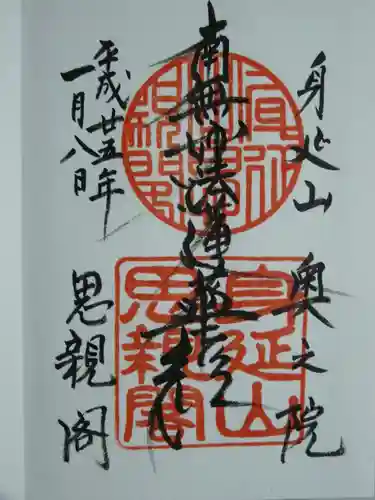 身延山
奥之院
南無妙法蓮華経
平成廿五年
一月八日
思親閣
身延山
思親閣